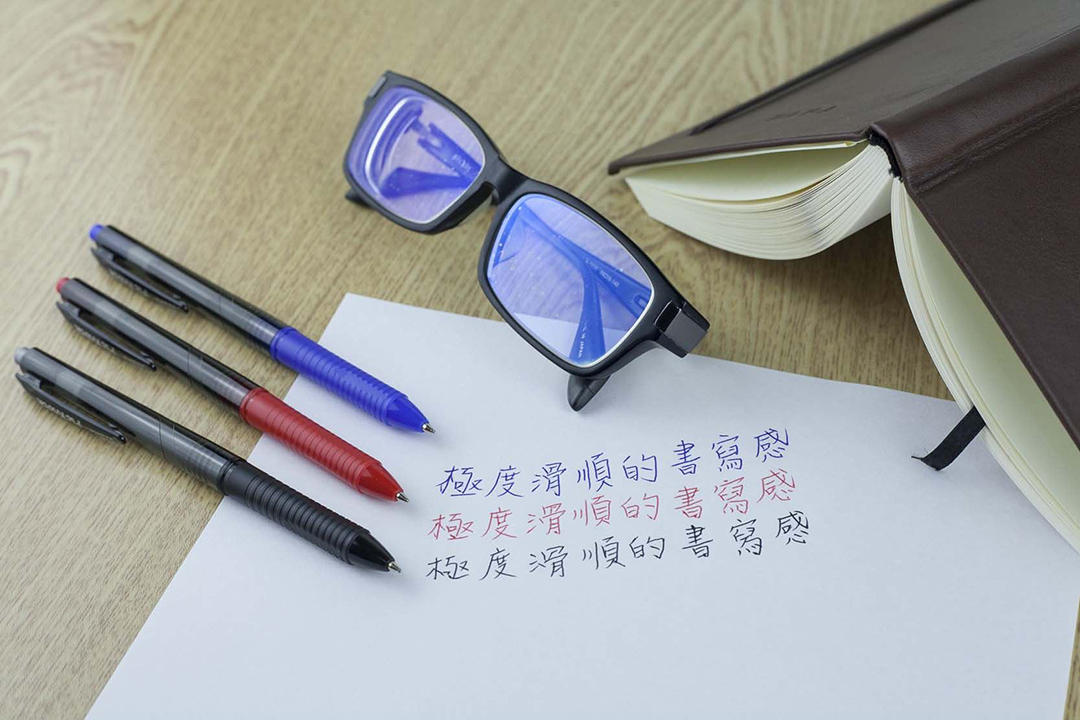 極度滑順的書寫感
極度滑順的書寫感
極度滑順的書寫感